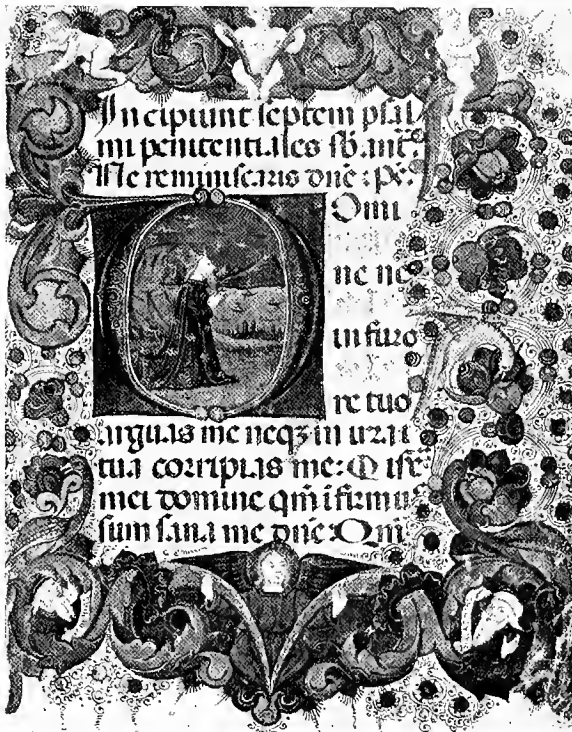 Incipiunt septem psal
mi penitentiales sb̄ ant̄.
Ne reminiscaris dn̄e: ps̄.
Omi
ne ne
in furo
re tuo
arguas me neqꝫ in ira
tua corripias me: Mise
mei domine qm̄ ifirmus
sum sana me dn̄e: Qm̄